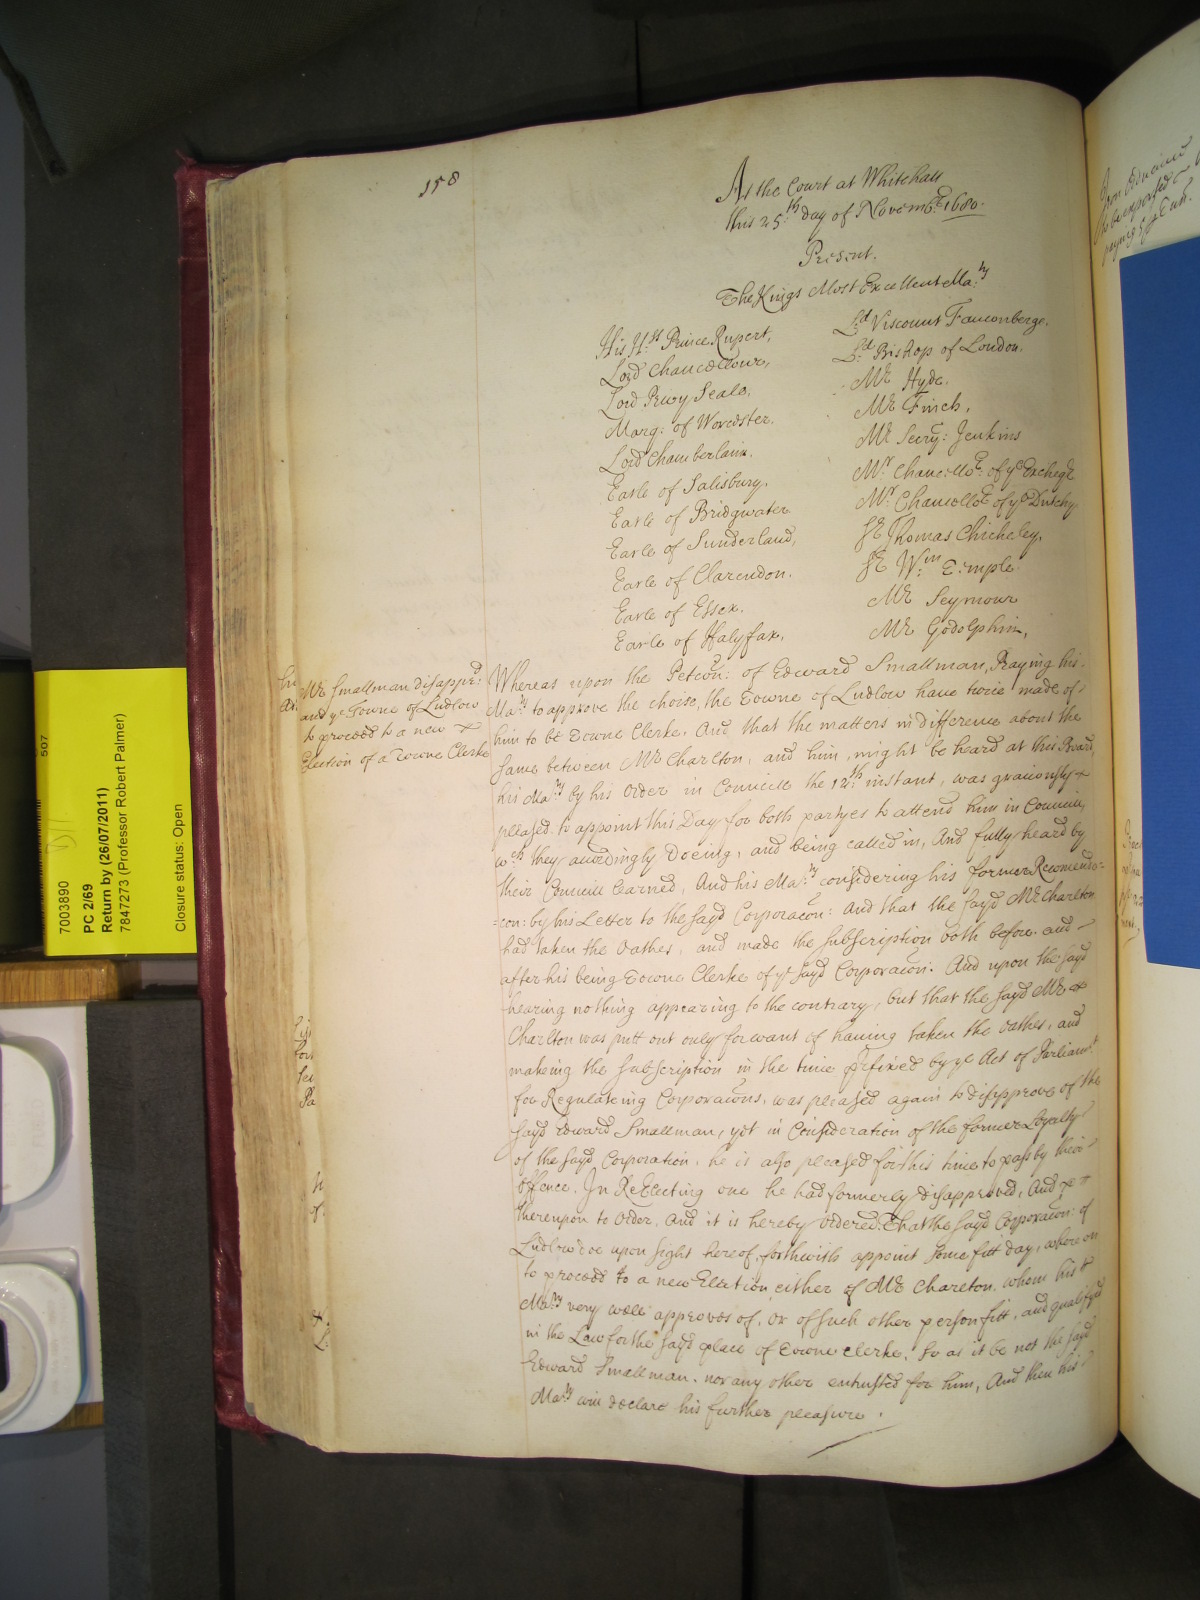 158
At the Court at Whitehall
this 25th day of Novembr 1680.
Present.
The Kings Most Excellent Ma:ty
His H:ss Prince Rupert,
Lord Chancellour,
Lord Privy Seale,
Marq: of Worcester,
Lord Chamberlain,
Earle of Salisbury,
Earle of Bridgwater
Earle of Sunderland,
Earle of Clarendon.
Earle of Essex.
Earle of Halyfax,
L:d Viscount Fauconberge.
L:d Bishop of London.
Mr Hyde.
Mr Finch,
Mr Secry: Jenkins
Mr Chancello:r of ye Excheqr
Mr Chancellor of ye Dutchy.
Sr Thomas Chicheley,
Sr Wm Temple
Mr Seymour
Mr Godolphin,
Mr Smallman disappr:d
and ye Towne of Ludlow
to proceed to a new
Election of a Towne Clerke
Whereas upon the Petcon: of Edward Smallman, Praying his
Ma:ty to approve the choise, the Towne of Ludlow have twice made of
him to be Towne Clerke, And that the matters in difference about the
same between Mr Charlton, and him, might be heard at this Board,
his Ma:ty by his Order in Councill the 12th instant, was graciously
pleased to appoint this Day for both partyes to attend him in Councill,
wch they accordingly Doeing, and being called in, And fully heard by
their Councill learned, And his Ma:ty considering his former Recomenda=
=con: by his Letter to the sayd Corporacon: And that the sayd Mr Charlton
had taken the Oathes, and made the subscription both before and
after his being Towne Clerke of ye sayd Corporacon: And upon the sayd
hearing nothing appearing to the contrary, but that the sayd Mr
Charlton was putt out only for want of having taken the Oathes, and
making the subscription in the time prefixed by ye Act of Parliamt
for Regulateing Corporacons, was pleased again to disapprove of the
sayd Edward Smallman, yet in Consideration of the former Loyalty
of the sayd Corporation, he is also pleased for this time to pass by their
Offence, In ReElecting one he had formerly disapproved, And
thereupon to Order, And it is hereby ordered, That the sayd Corporacon: of
Ludlow doe upon sight hereof, forthwith appoint some fitt day, whereon
to proceed to a new Election either of Mr Charlton, whom his
Ma:ty very well approves of, or of such other person fitt, and qualifyed
in the Law for the sayd place of Towne Clerke, So as it be not the sayd
Edward Smallman, nor any other entrusted for him, And then his
Ma:ty will declare his further pleasure.
507
7003890
PC 2/69
Return by (26/07/2011)
7847273 (Professor Robert Palmer)
Closure status: Open